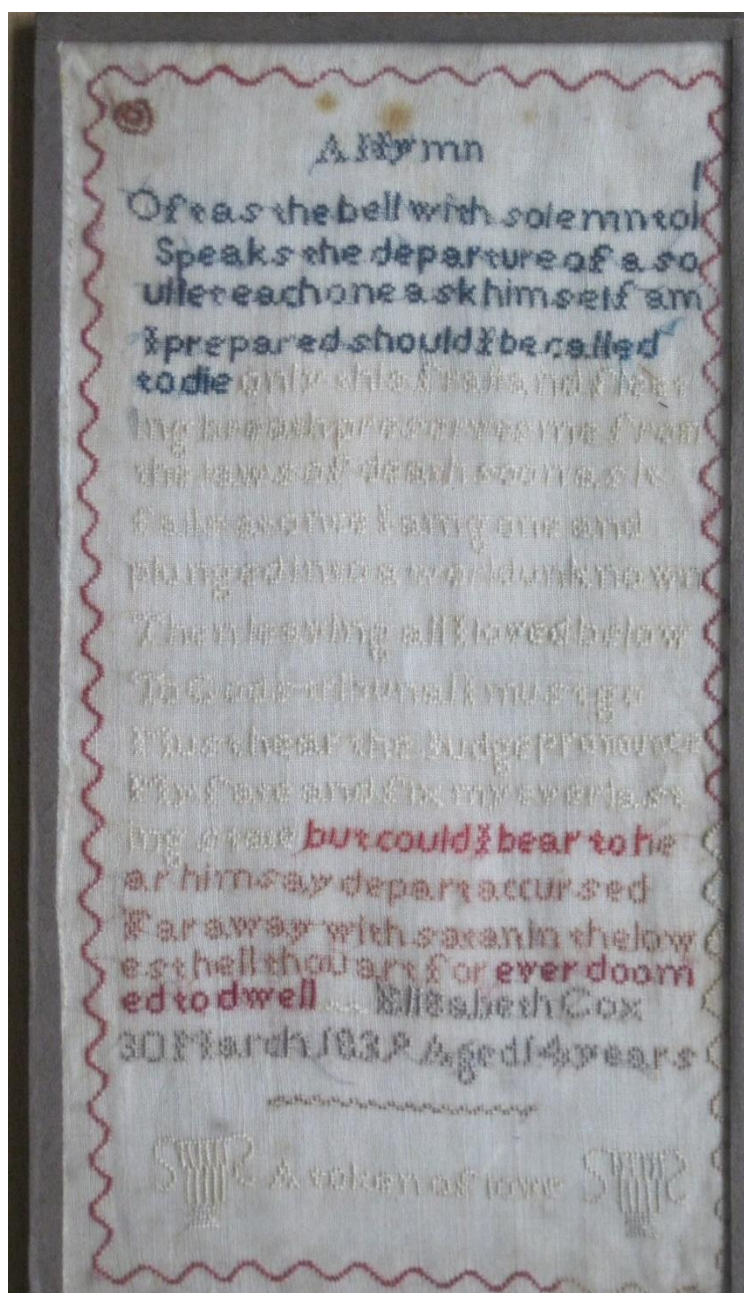 A Hymn
Oft as the bell with solemn tol l
Speaks the departure of a so
ul let each one ask himself am
I prepared should I be called
to die only this frail and fleet
ing breath preserves me from
the jaws of death soon as it
fails at once I am gone and
plunged into a world unknown
Then leaving all I loved below
To Gods tribunal I must go
Must hear the Judge pronounce
My fate and fix my everlast
ing state but could I bear to he
ar him say depart accursed
Far away with satan in the low
est hell thou art for ever doom
ed to dwell Elisabeth Cox
30 March 1838 Aged 14 years
A token of love